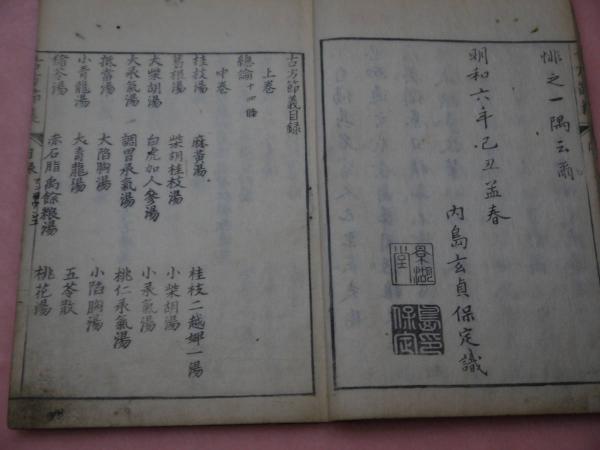 悱之一隅云爾
明和六年己丑孟春
内島玄貞保定識
景湖堂
島印保定
古方節義目録
上巻
總論十四條
中巻
桂枝湯 麻黄湯 桂枝二越婢一湯
葛根湯 柴胡桂枝湯 小柴胡湯
大柴胡湯 白虎加人參湯 小承氣湯
大承氣湯 調胃承氣湯 桃仁承氣湯
抵當湯 大陷胸湯 小陷胸湯
小青龍湯 大青龍湯 五苓散
猪苓湯 赤石脂禹餘粮湯 桃花湯